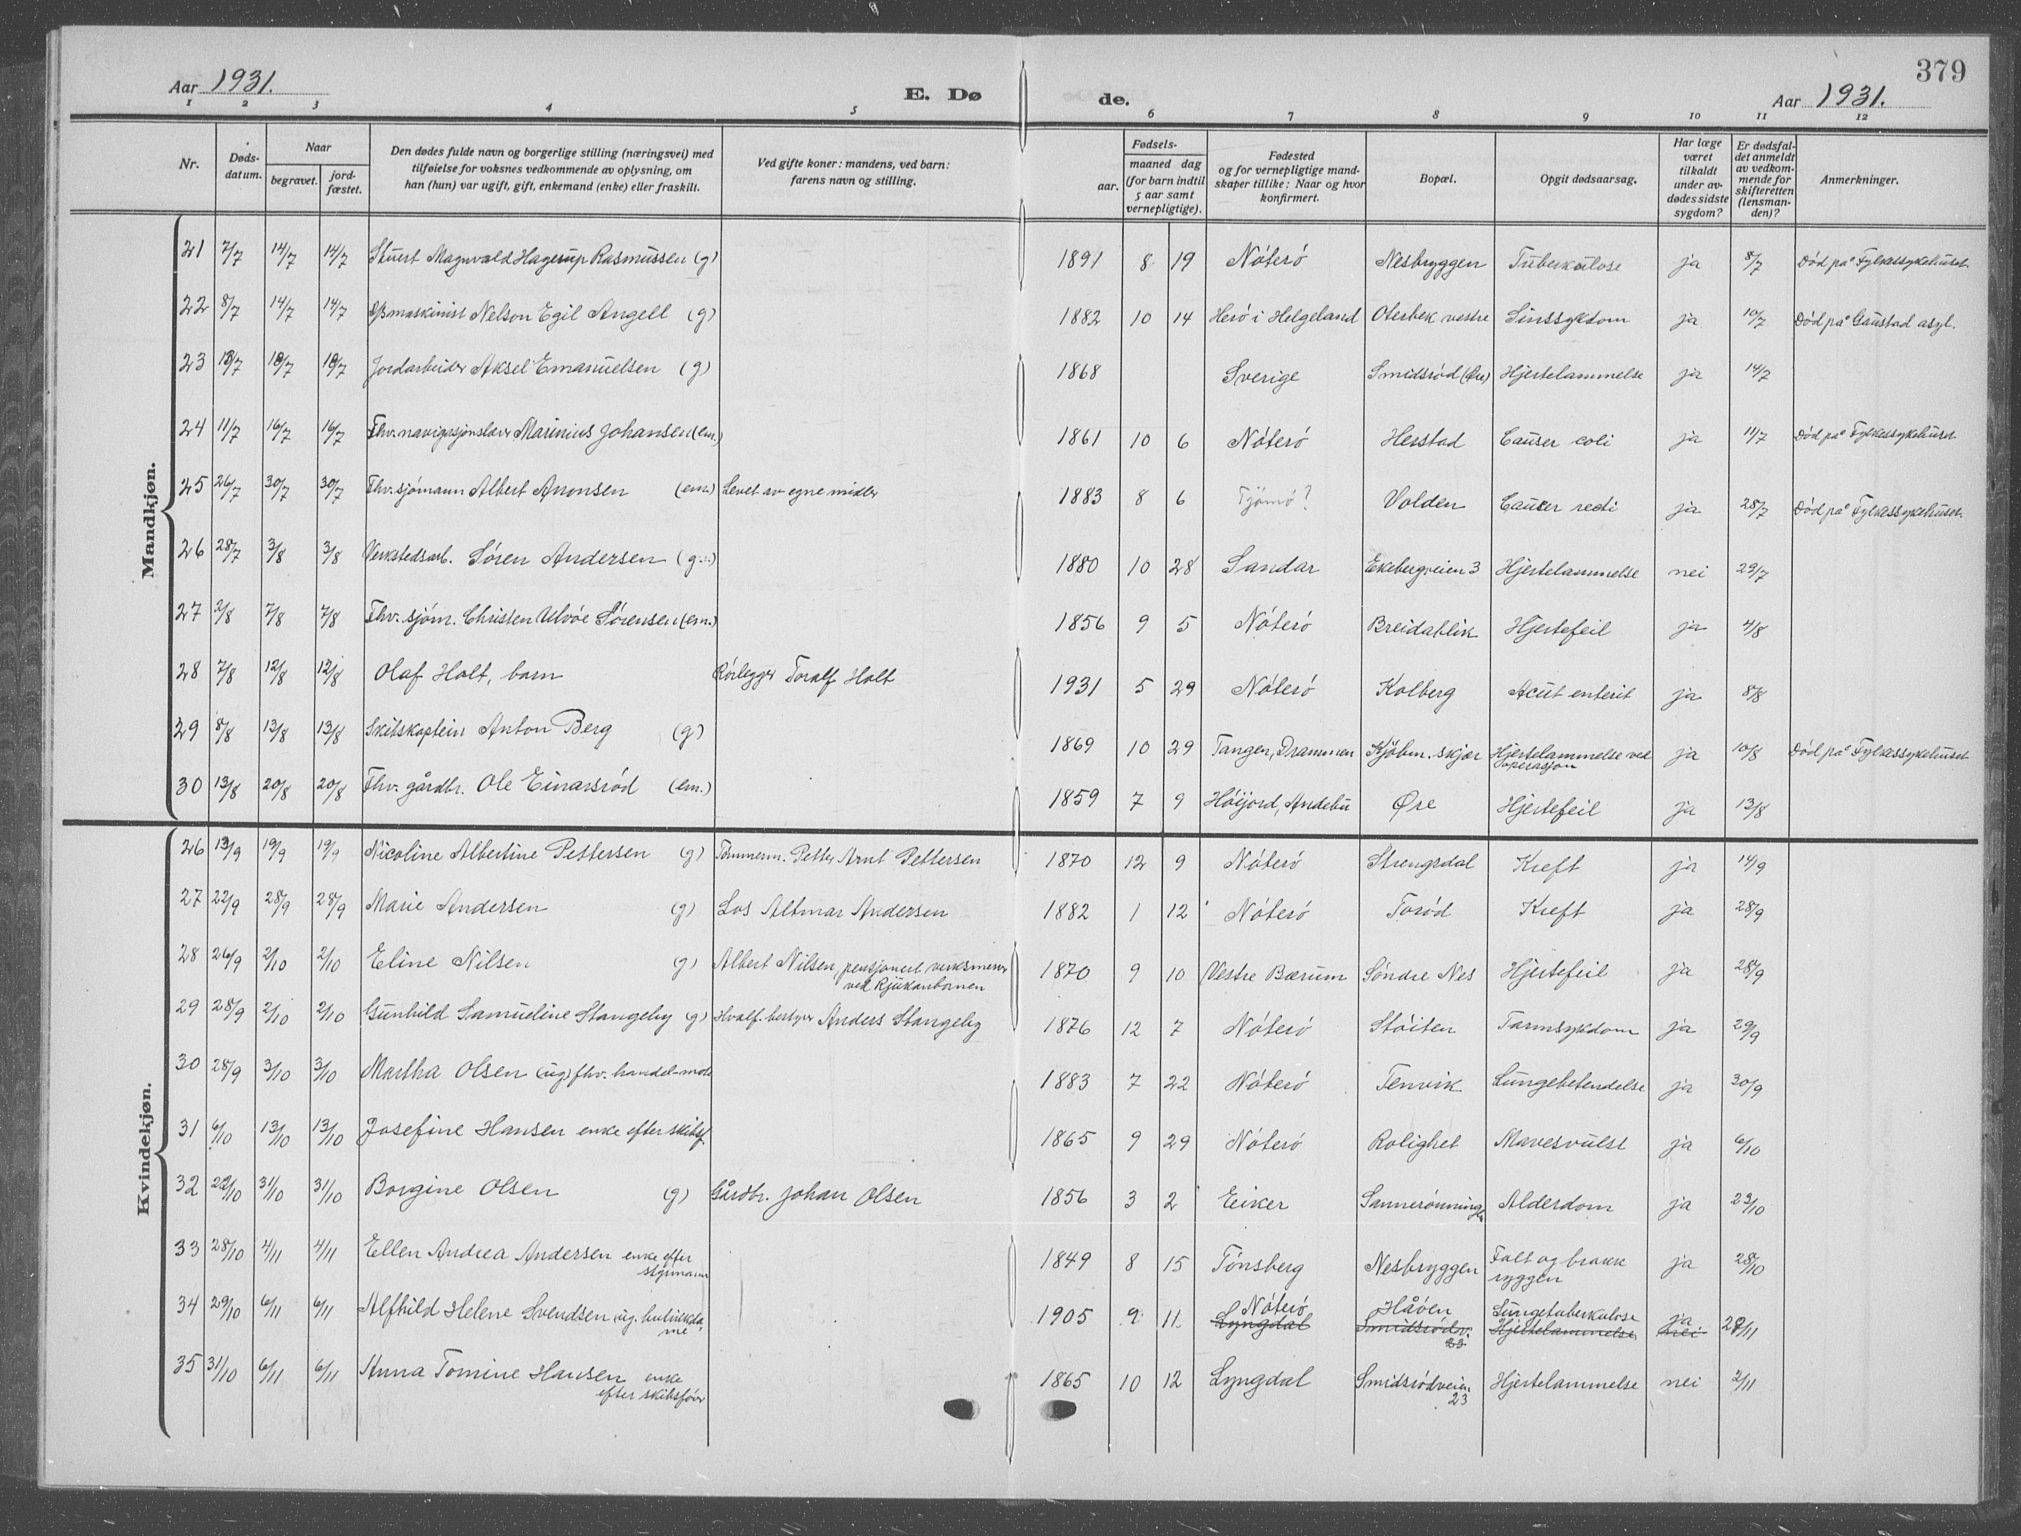 379
Aar 1931.
E. Døde.
Aar 1931.
1 2 3 4 5 6 7 8 9 10 11 12
Nr.
Døds-
datum.
Naar
begravet.
jord-
fæstet.
Den dødes fulde navn og borgerlige stilling (næringsvei) med
tilføielse for voksnes vedkommende av oplysning, om
han (hun) var ugift, gift, enkemand (enke) eller fraskilt.
Ved gifte koner: mandens, ved barn:
farens navn og stilling.
Fødsels-
aar.
maaned dag
(for barn indtil
5 aar samt
vernepligtige).
Fødested
og for vernepligtige mand-
skaper tillike: Naar og hvor
konfirmert.
Bopæl.
Opgit dødsaarsag.
Har læge
været
tilkaldt
under av-
dødes sidste
sygdom?
Er dødsfal-
det anmeldt
av vedkom-
mende for
skifteretten
(lensman-
den)?
Anmerkninger.
Mandkjøn.
21 7/7 14/7 14/7 Stuert Magnvald Hagerup Rasmussen (g) 1891 8 19 Nøterø Nesbryggen Tuberkulose ja 8/7 Død på Fylkessykehuset
22 8/7 14/7 14/7 Nelson Egil Angell (g) 1882 10 14 Herø i Helgeland Olesbek vestre Sinssykdom ja 10/7 Død på Gaustad asyl.
23 18/7 19/7 Jordarbeider Aksel Emanuelsen (g) 1868 Sverige Smidsrød (Øre) Hjertelammelse ja 14/7
24 11/7 16/7 16/7 Fhv. navigasjonslærer Marinius Johansen (em.) 1861 10 6 Nøterø Herstad Cancer coli ja 11/7 Død på Fylkessykehuset
25 26/7 30/7 30/7 Fhv. sjømann Albert Aronsen (em.) Levet av egne midler 1883 8 6 Tjømø? Volden Cancer recti ja 28/7 Død på Fylkessykehuset
26 28/7 3/8 3/8 Verkstedsarb. Søren Andersen (g.) 1880 10 28 Sandar Ekebergveien 3 Hjertelammelse nei 29/7
27 2/8 7/8 7/8 Fhv. sjøm. Christen Ulvøe Sørensen (em.) 1856 9 5 Nøterø Breidablik Hjertefeil ja 4/8
28 7/8 12/8 12/8 Olaf Holt, barn Rørlegger Toralf Holt 1931 5 29 Nøterø Kolberg Acut enterit ja 8/8
29 8/8 13/8 13/8 Skibskaptein Anton Berg (g) 1869 10 29 Tangen, Drammen Kjøbm. skjær Hjertelammelse ved
operasjon ja 10/8 Død på Fylkessykehuset
30 13/8 20/8 20/8 Fhv. gårdbr. Ole Einarsrød (em.) 1859 7 9 Høijord, Andebu Øre Hjertefeil ja 13/8
Kvindekjøn.
26 13/9 19/9 19/9 Nicoline Albertine Pettersen (g) Tømmerm. Petter Arnt Pettersen 1870 12 9 Nøterø Strengsdal Kreft ja 14/9
27 22/9 28/9 28/9 Marie Andersen (g) Los Altmar Andersen 1882 1 12 Nøterø Torød Kreft ja 28/9
28 26/9 2/10 2/10 Eline Nilsen (g) Albert Nilsen, pensjonert verksmester
ved Rjukanbanen 1870 9 10 Vestre Bærum Søndre Nes Hjertefeil ja 28/9
29 28/9 2/10 2/10 Gunhild Samueline Stangeby (g) Hvalf. bestyrer Anders Stangeby 1876 12 7 Nøterø Støiten Tarmsykdom ja 29/9
30 28/9 3/10 3/10 Martha Olsen (ug) fhv. handel- 1883 7 22 Nøterø Tenvik Lungebetendelse ja 30/9
31 6/10 13/10 13/10 Josefine Hansen enke efter skibsf. 1865 9 29 Nøterø Rolighet Mavesvulst ja 6/10
32 22/10 31/10 31/10 Borgine Olsen (g) Gårdbr. Johan Olsen 1856 3 2 Eiker Sannerønningen Alderdom ja 23/10
33 28/10 4/11 4/11 Ellen Andrea Andersen enke efter
styrmann 1849 8 15 Tønsberg Nesbryggen Falt og brakk
ryggen ja 28/10
34 29/10 6/11 6/11 Alfhild Helene Svendsen ug. butikkda-
me 1905 9 11 Nøterø
Lyngdal Håøen
Smidsrødv.
23 Lungetuberkulose
Hjertelammelse ja
nei 2/11
35 31/10 6/11 6/11 Anna Tomine Hansen enke
efter skibsfører 1865 10 12 Lyngdal Smidsrødveien
23 Hjertelammelse nei 2/11